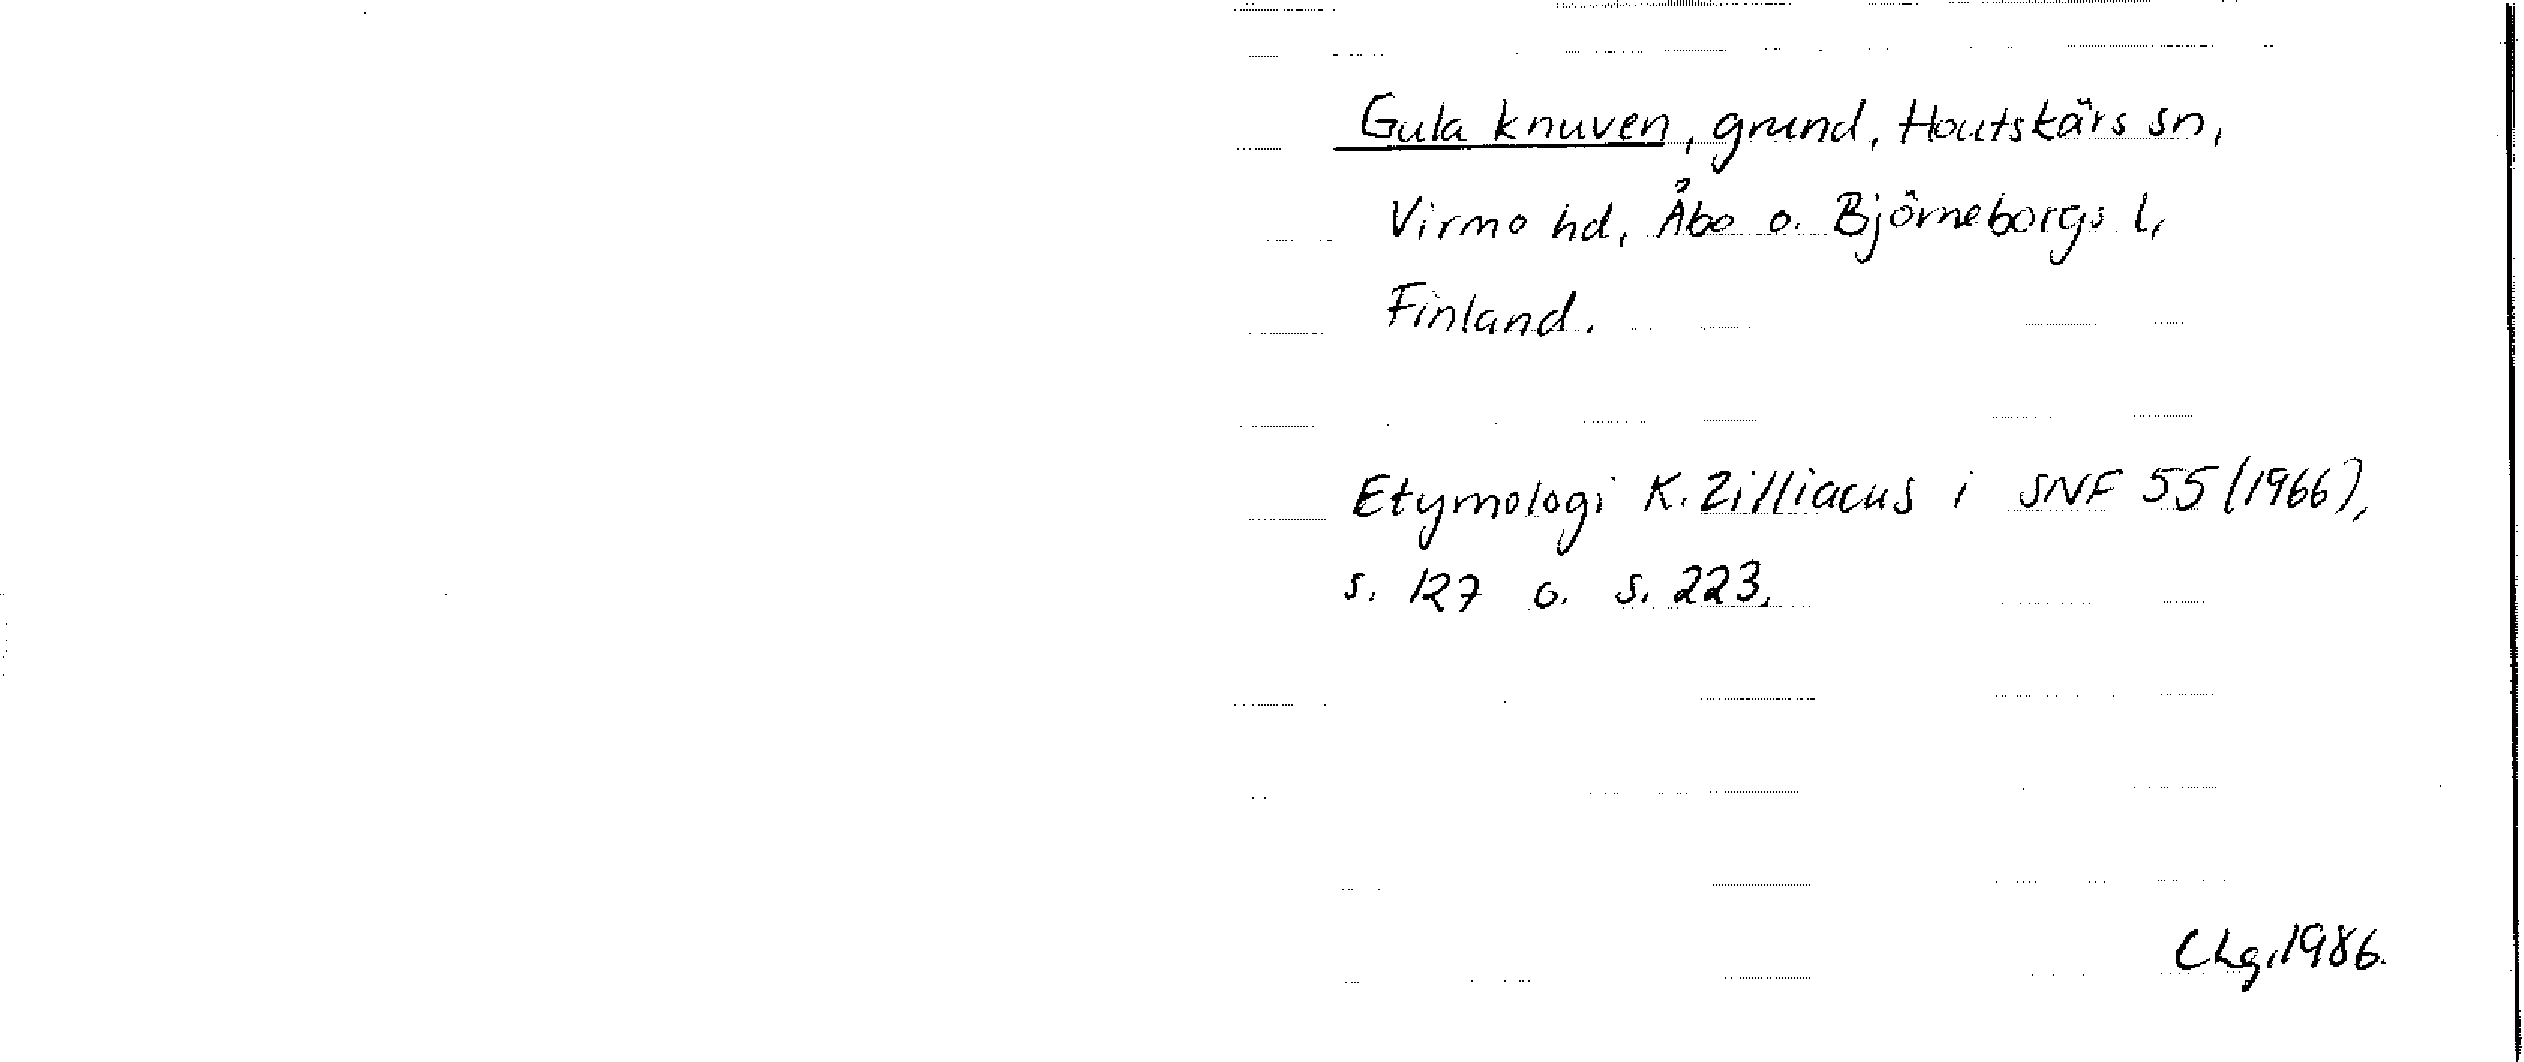 Gula knuven, grund, Houtskärs sn,
Virmo hd, Åbo o. Björneborgs l,
Finland.
Etymologi K. Zilliacus i SNF 55 (1966),
s. 127 o. s. 223.
CLg, 1986.